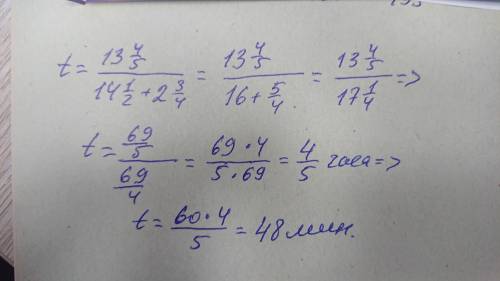 t = 13 4/5 / (14 1/2 + 2 3/4) = 13 4/5 / (16 + 5/4) = 13 4/5 / 17 1/4 =>
t = 69/5 / 69/4 = 69·4 / 5·69 = 4/5 часа =>
t = 60·4 / 5 = 48 мин.